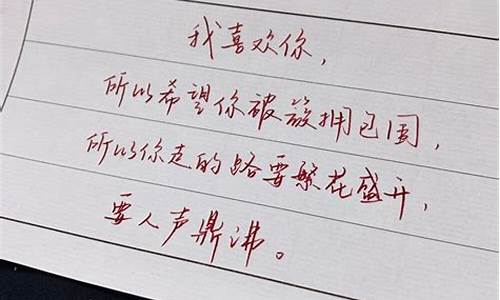 我喜欢你，
所以希望你被簇拥包围，
所以你走的路要繁花盛开，
要人声鼎沸。